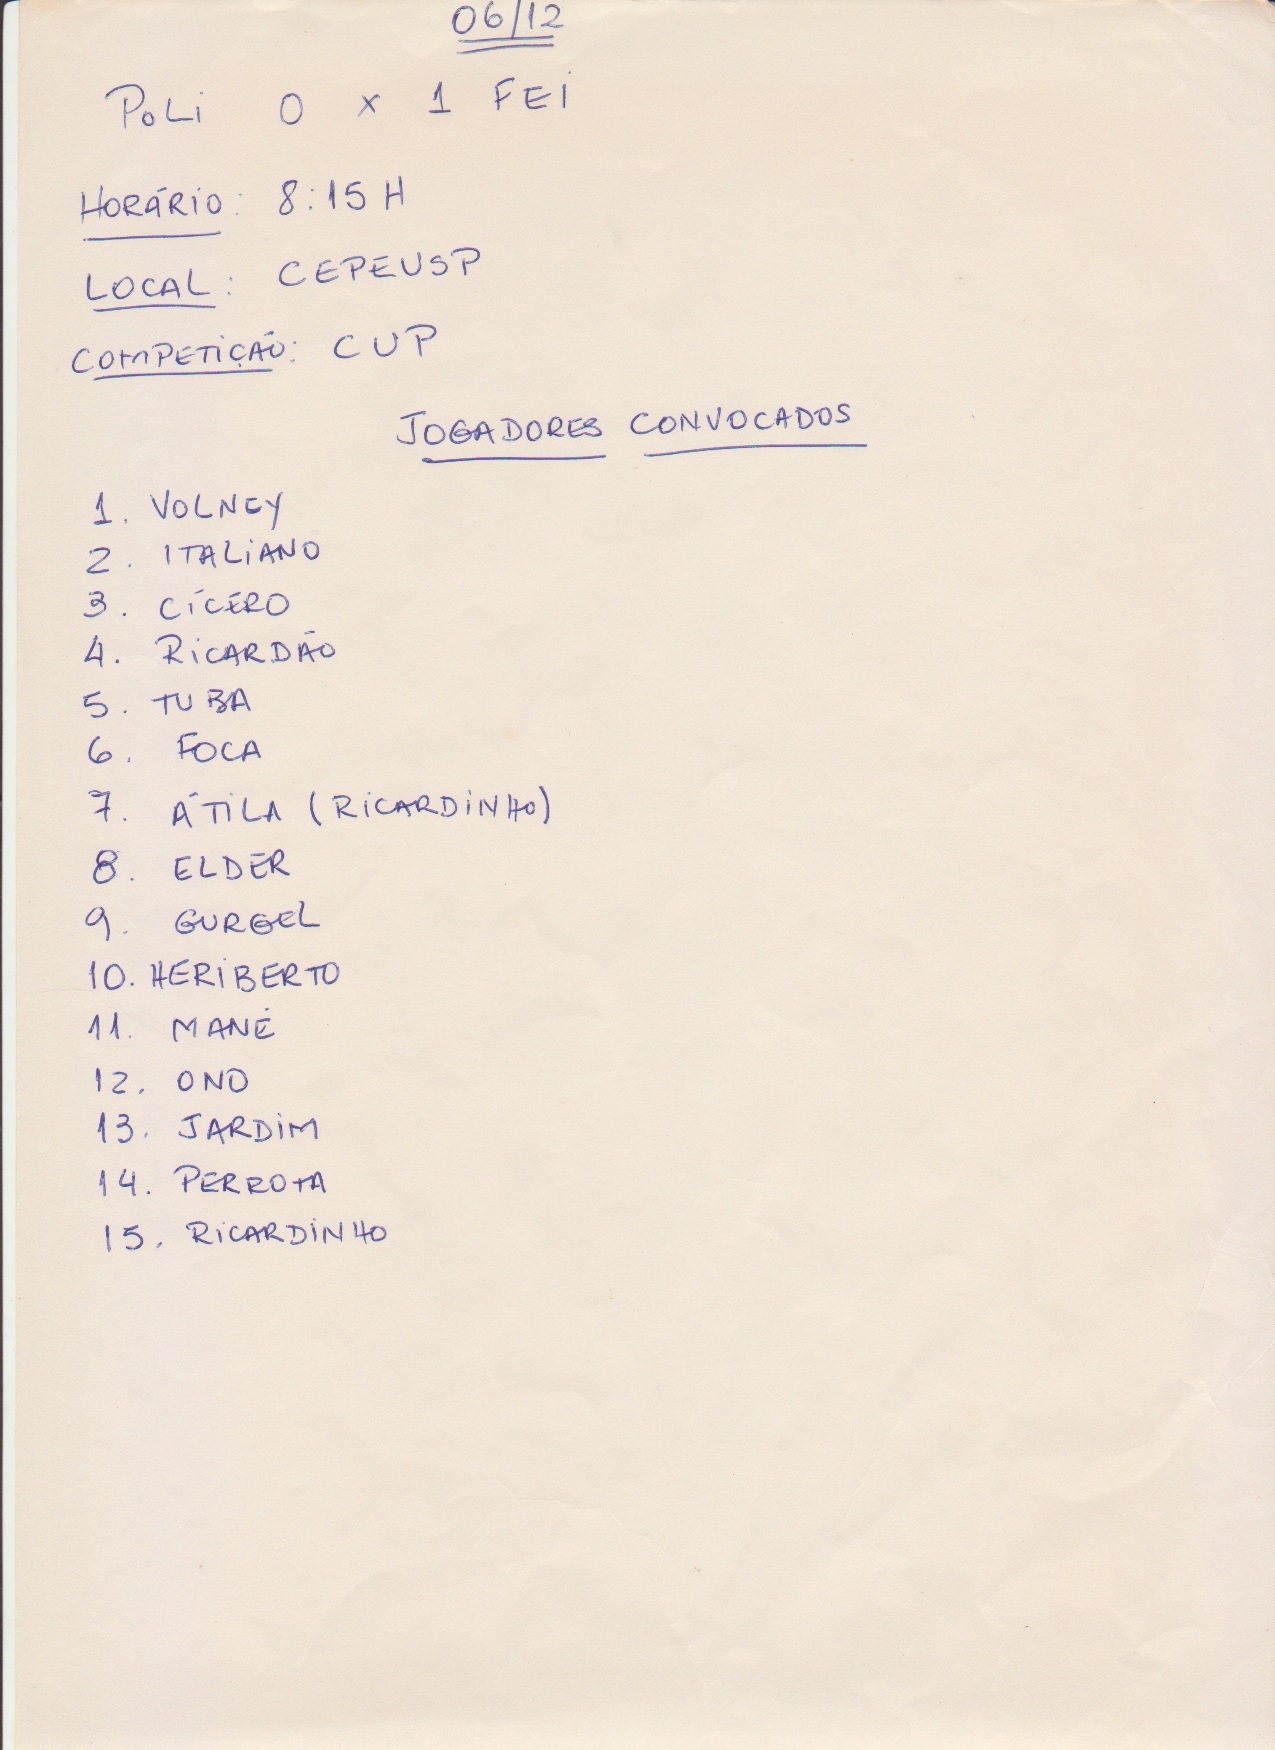 06/12
POLI 0 x 1 FEI
HORÁRIO: 8:15 H
LOCAL: CEPEUSP
COMPETIÇÃO: CUP
JOGADORES CONVOCADOS
1. VOLNEY
2. ITALIANO
3. CÍCERO
4. RICARDÃO
5. TUBA
6. FOCA
7. ÁTILA (RICARDINHO)
8. ELDER
9. GURGEL
10. HERIBERTO
11. MANÉ
12. ONO
13. JARDIM
14. PERROTA
15. RICARDINHO